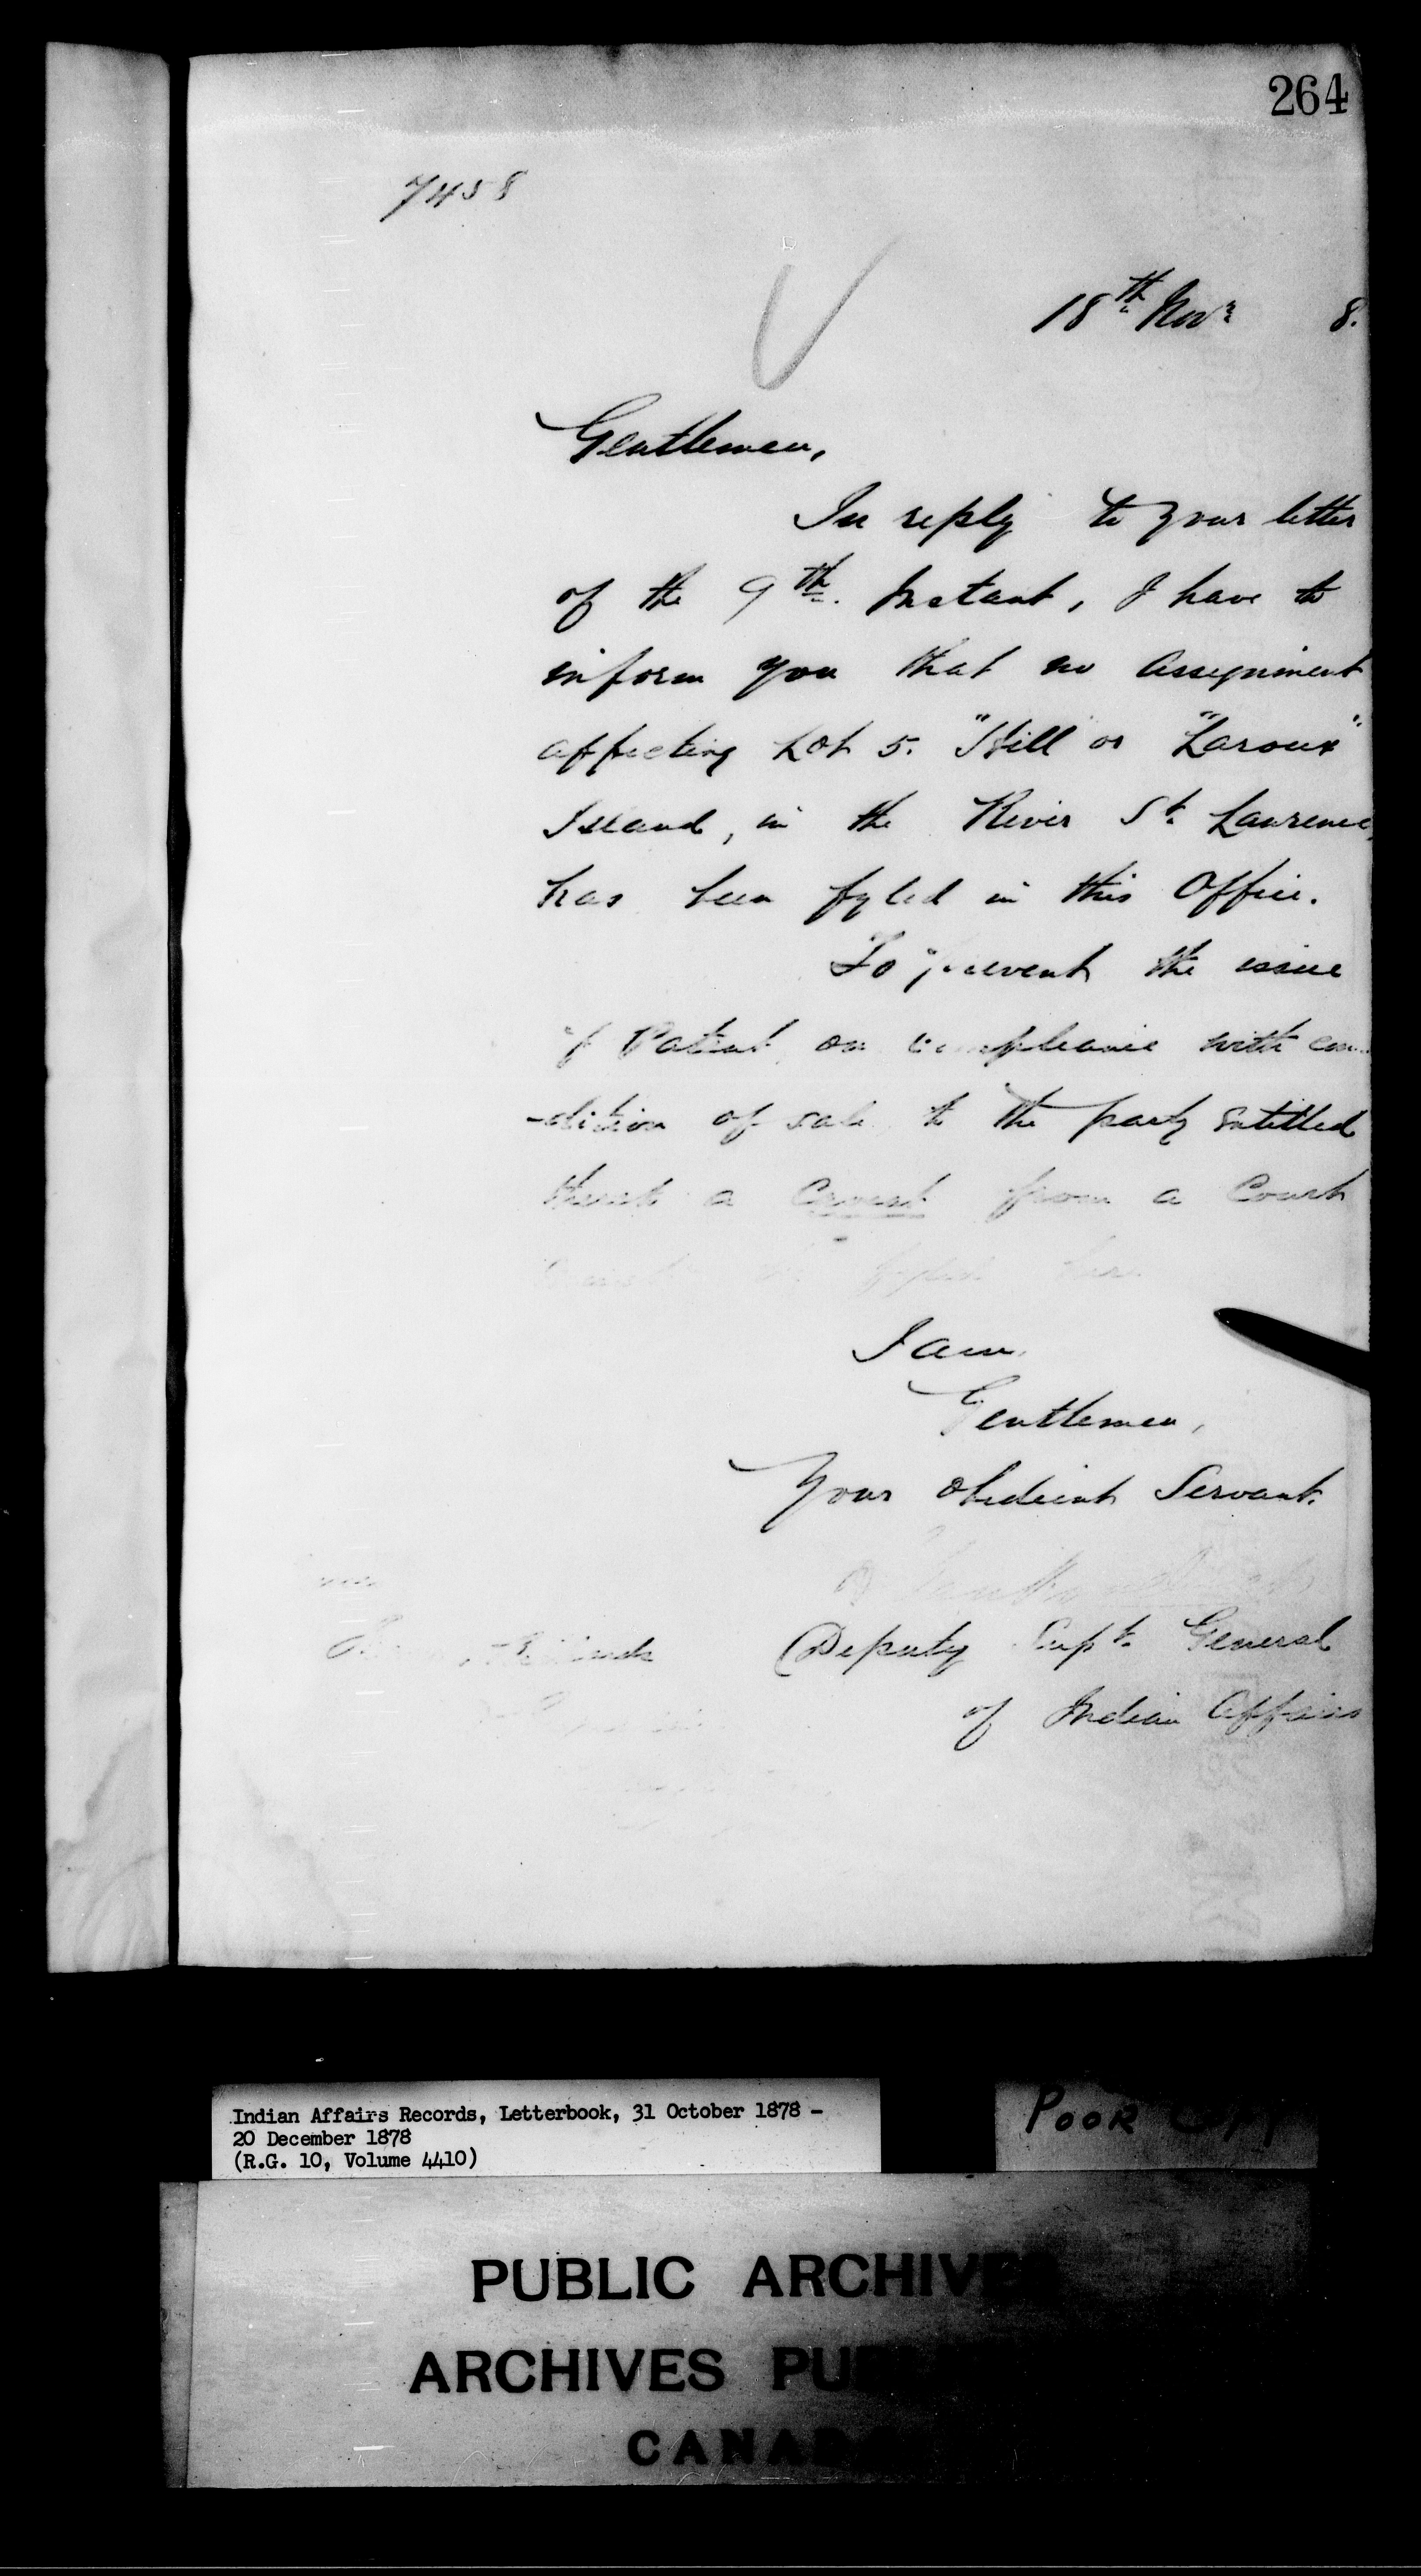 264
7458
18th Novr 8.
Gentlemen,
In reply to your letter
of the 9th. Instant, I have to
inform you that no Assignment
affecting Lot 5. "Hill or "Laroux"
Island, in the River St. Lawrence,
has been fyled in this Office.
To prevent the issue
of Patent on compliance with con
-dition of sale to the party entitled
thereto a from a Court
I am,
Gentlemen,
Your Obedient Servant.
Deputy Supt. General
of Indian Affairs
Indian Affairs Records, Letterbook, 31 October 1878 -
20 December 1878
(R.G. 10, Volume 4410)
POOR COPY
PUBLIC ARCHIVES
ARCHIVES PU
CANADA